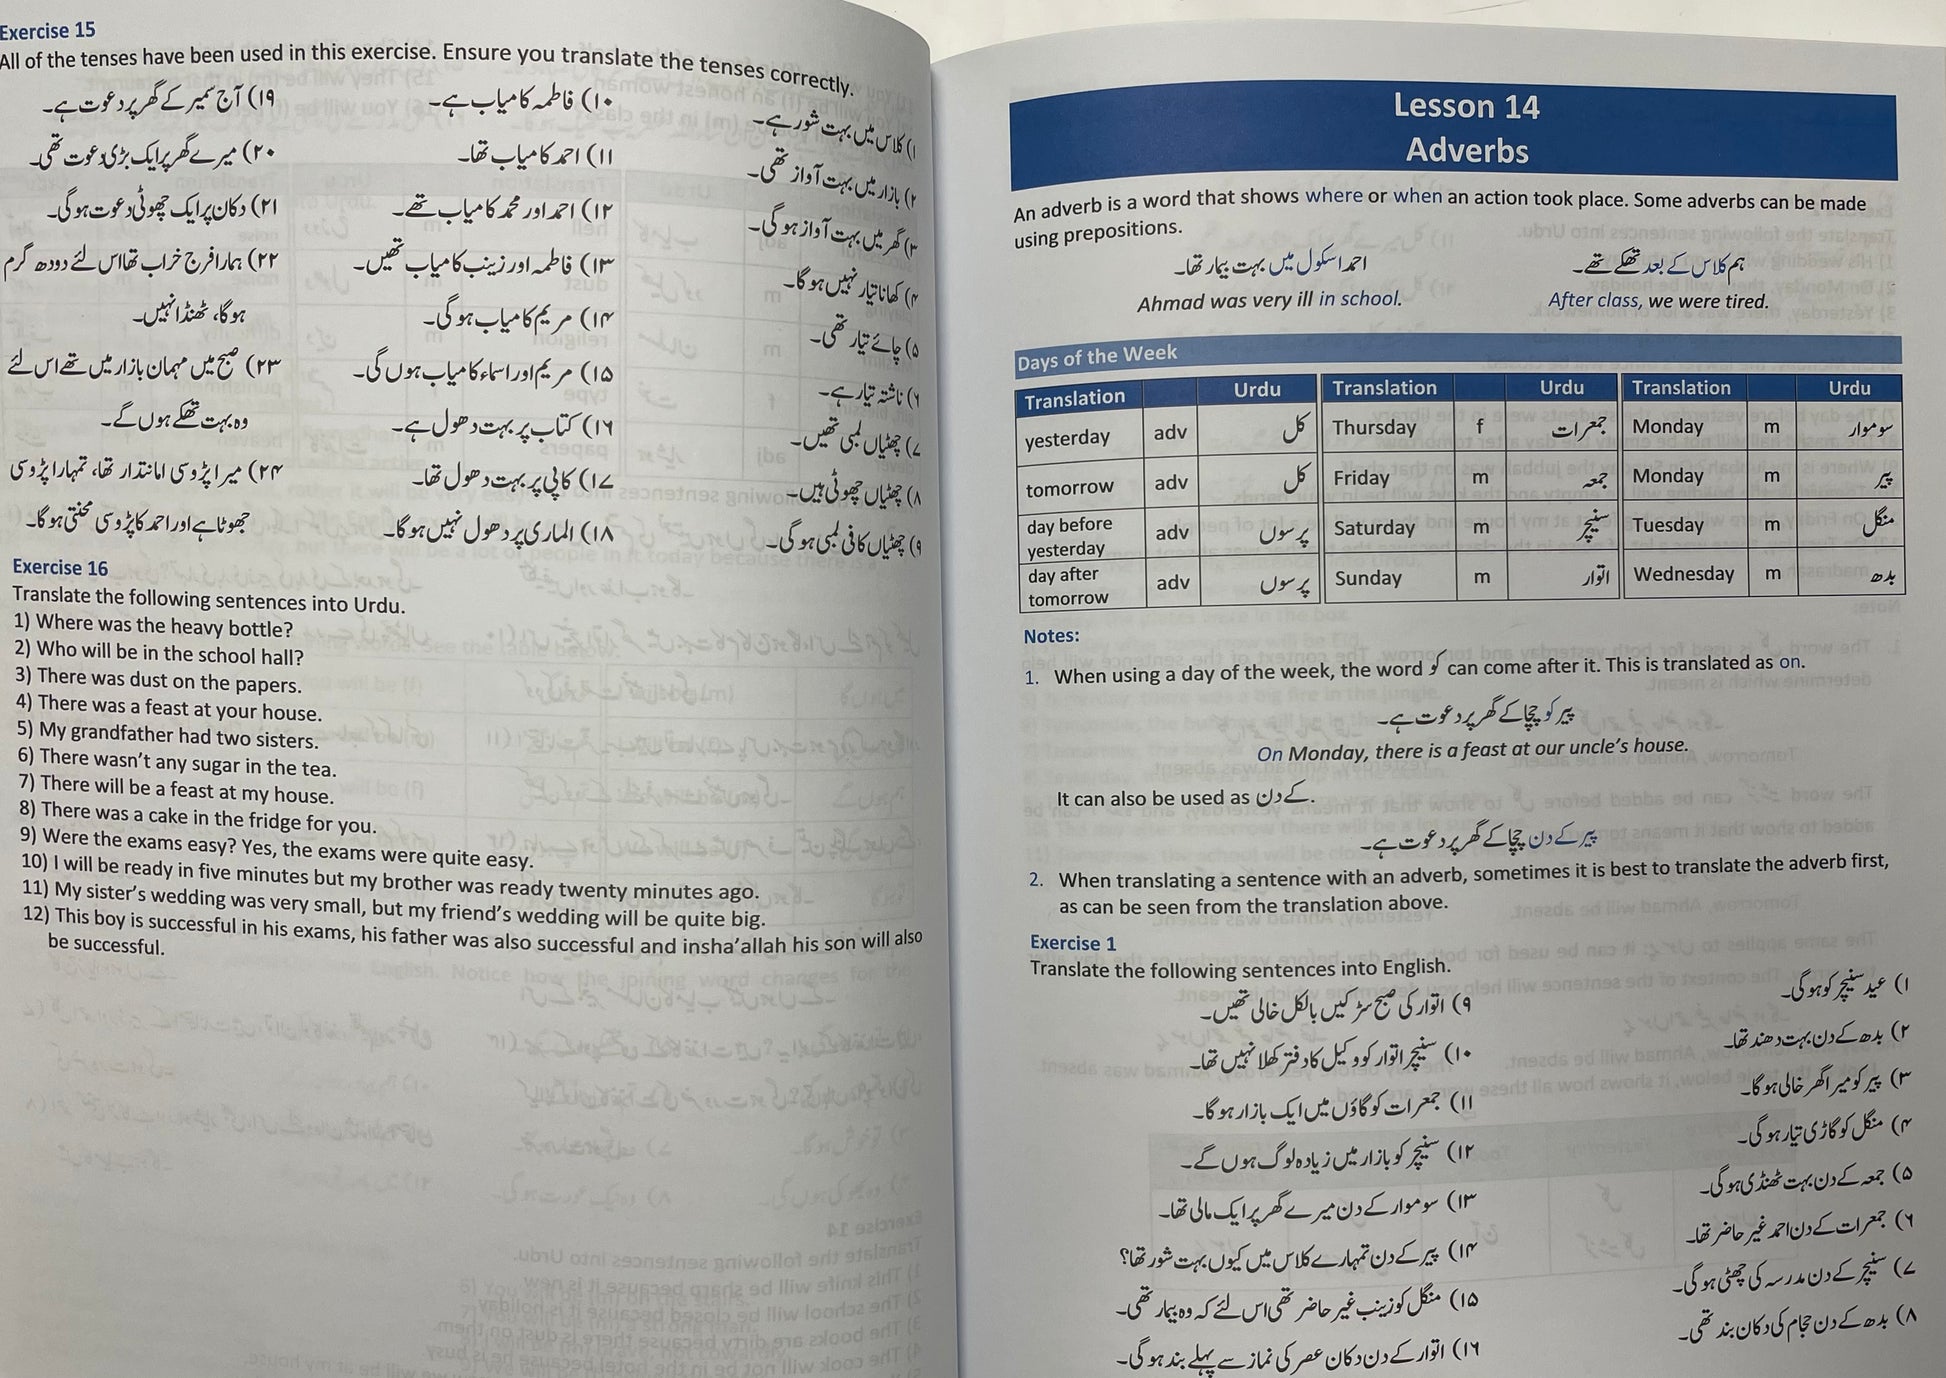 Exercise 15
All of the tenses have been used in this exercise. Ensure you translate the tenses correctly.
۱) کلاس میں بہت شور ہے۔
۲) بازار میں بہت آواز تھی۔
۳) گھر میں بہت آواز ہو گی۔
۴) کھانا تیار نہیں ہو گا۔
۵) چائے تیار تھی۔
۶) ناشتہ تیار ہے۔
۷) چھٹیاں لمبی تھیں۔
۸) چھٹیاں چھوٹی ہیں۔
۹) چھٹیاں کافی لمبی ہو گی۔
۱۰) فاطمہ کامیاب ہے۔
۱۱) احمد کامیاب تھا۔
۱۲) احمد اور محمد کامیاب تھے۔
۱۳) فاطمہ اور زینب کامیاب تھیں۔
۱۴) مریم کامیاب ہو گی۔
۱۵) مریم اور اسماء کامیاب ہوں گی۔
۱۶) کتاب پر بہت دھول ہے۔
۱۷) کاپی پر بہت دھول تھا۔
۱۸) الماری پر دھول نہیں ہو گا۔
۱۹) آج سمیر کے گھر پر دعوت ہے۔
۲۰) میرے گھر پر ایک بڑی دعوت تھی۔
۲۱) دکان پر ایک چھوٹی دعوت ہو گی۔
۲۲) ہمارا فرج خراب تھا اس لئے دودھ گرم
ہو گا، ٹھنڈا نہیں۔
۲۳) صبح میں مہمان بازار میں تھے اس لئے
وہ بہت تھکے ہوں گے۔
۲۴) میرا پڑوسی امانتدار تھا، تمہارا پڑوسی
جھوٹا ہے اور احمد کا پڑوسی محنتی ہو گا۔
Exercise 16
Translate the following sentences into Urdu.
1) Where was the heavy bottle?
2) Who will be in the school hall?
3) There was dust on the papers.
4) There was a feast at your house.
5) My grandfather had two sisters.
6) There wasn't any sugar in the tea.
7) There will be a feast at my house.
8) There was a cake in the fridge for you.
9) Were the exams easy? Yes, the exams were quite easy.
10) I will be ready in five minutes but my brother was ready twenty minutes ago.
11) My sister's wedding was very small, but my friend's wedding will be quite big.
12) This boy is successful in his exams, his father was also successful and insha'allah his son will also
be successful.
Lesson 14
Adverbs
An adverb is a word that shows where or when an action took place. Some adverbs can be made
using prepositions.
احمد اسکول میں بہت بیمار تھا۔ ہم کلاس کے بعد تھکے تھے۔
Ahmad was very ill in school. After class, we were tired.
Days of the Week
Translation Urdu Translation Urdu Translation Urdu
yesterday adv کل Thursday f جمعرات Monday m سوموار
tomorrow adv کل Friday m جمعہ Monday m پیر
day before yesterday adv پرسوں Saturday m سنیچر Tuesday m منگل
day after tomorrow adv پرسوں Sunday m اتوار Wednesday m بدھ
Notes:
1. When using a day of the week, the word کو can come after it. This is translated as on.
پیر کو چچا کے گھر پر دعوت ہے۔
On Monday, there is a feast at our uncle's house.
It can also be used as کے دن.
پیر کے دن چچا کے گھر پر دعوت ہے۔
2. When translating a sentence with an adverb, sometimes it is best to translate the adverb first,
as can be seen from the translation above.
Exercise 1
Translate the following sentences into English.
۱) عید سنیچر کو ہو گی۔
۲) بدھ کے دن بہت دھند تھا۔
۳) پیر کو میرا گھر خالی ہو گا۔
۴) منگل کو گاڑی تیار ہو گی۔
۵) جمعہ کے دن بہت ٹھنڈی ہو گی۔
۶) جمعرات کے دن احمد غیر حاضر تھا۔
۷) سنیچر کے دن مدرسہ کی چھٹی ہو گی۔
۸) بدھ کے دن حجام کی دکان بند تھی۔
۹) اتوار کی صبح سڑکیں بالکل خالی تھیں۔
۱۰) سنیچر اتوار کو وکیل کا دفتر کھلا نہیں تھا۔
۱۱) جمعرات کو گاؤں میں ایک بازار ہو گا۔
۱۲) سنیچر کو بازار میں زیادہ لوگ ہوں گے۔
۱۳) سوموار کے دن میرے گھر پر ایک مالی تھا۔
۱۴) پیر کے دن تمہارے کلاس میں کیوں بہت شور تھا؟
۱۵) منگل کو زینب غیر حاضر تھی اس لئے کہ وہ بیمار تھی۔
۱۶) اتوار کے دن دکان عصر کی نماز سے پہلے بند ہو گی۔